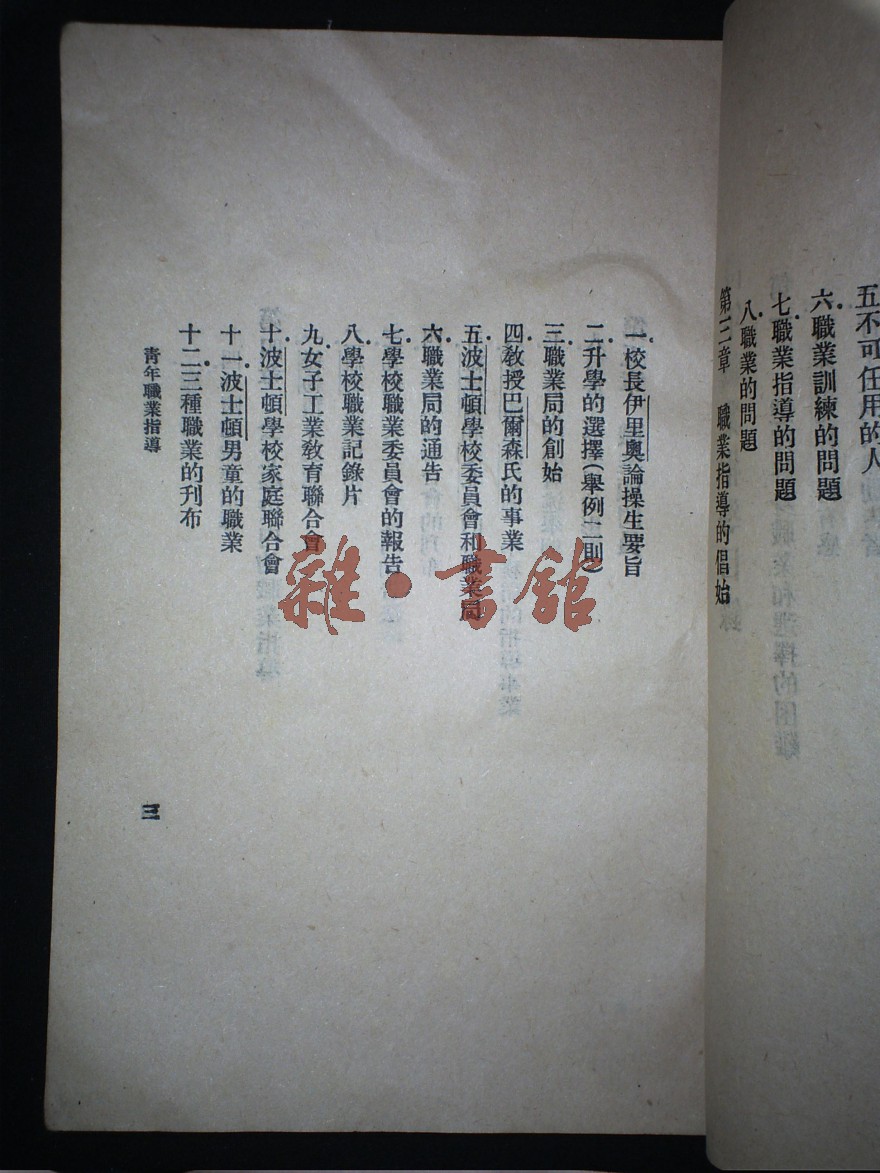 五不可任用的人
六職業訓練的問題
七職業指導的問題
八職業的問題
第三章　職業指導的倡始
一校長伊里奧論操生要旨
二升學的選擇(舉例二則)
三職業局的創始
四教授巴爾森氏的事業
五波士頓學校委員會和職業局
六職業局的通告
七學校職業委員會的報告
八學校職業記錄片
九女子工業教育聯合會
十波士頓學校家庭聯合會
十一波士頓男童的職業
十二三種職業的刋布
青年職業指導
三
雜·書館